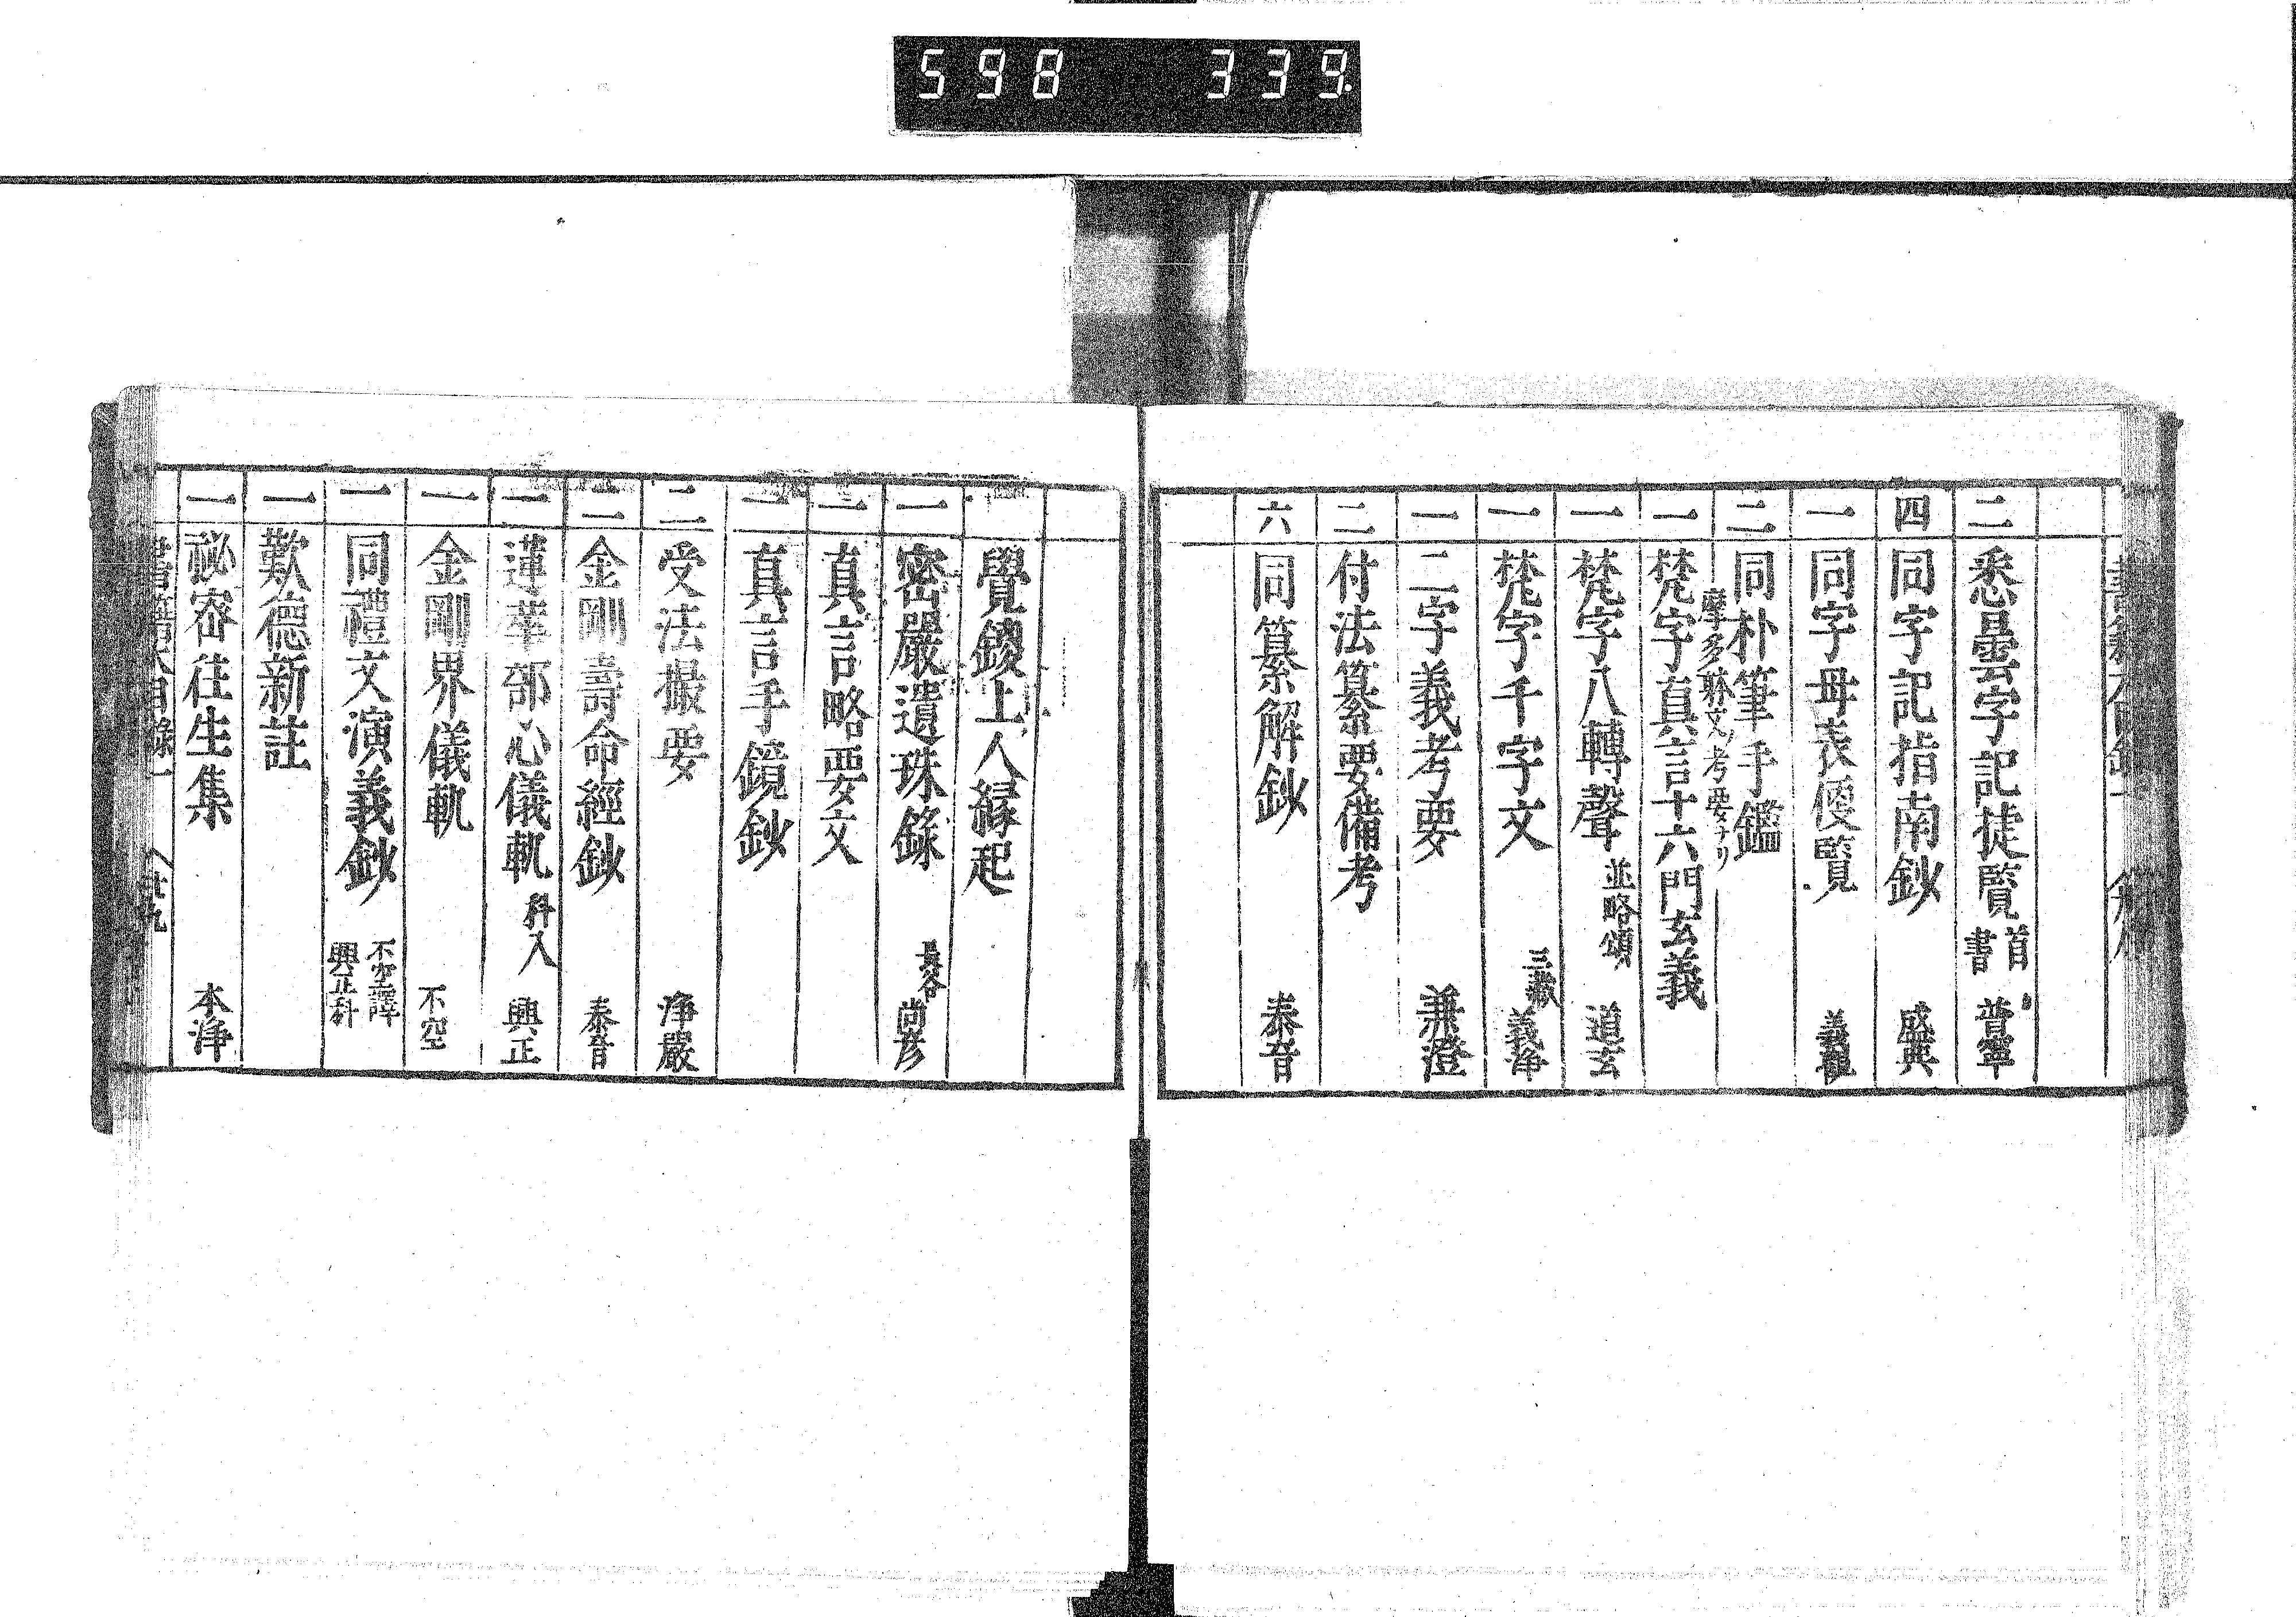 598 339
二 悉曇字記捷覧 首書 普寧
四 同字記指南鈔 盛典
一 同字母表便覧 義龍
二 同朴筆手鑑
摩多躰文ノ考要ナリ
一 梵字真言十六門玄義
一 梵字八轉聲 並略頌 道玄
一 梵字千字文 三藏 義浄
一 二字義考要 兼澄
二 付法纂要備考
六 同纂解鈔 泰音
覺鑁上人縁起
一 密嚴遺珠錄 長谷 尚彦
二 真言略要文
一 真言手鏡鈔
二 受法撮要 浄嚴
三 金剛壽命經鈔 泰音
一 蓮華部心儀軌 科入 興正
一 金剛界儀軌 不空
一 同禮文演義鈔 不空譯 興正科
一 歎德新註
一 祕密往生集 本浄
書籍大目錄一 廿九